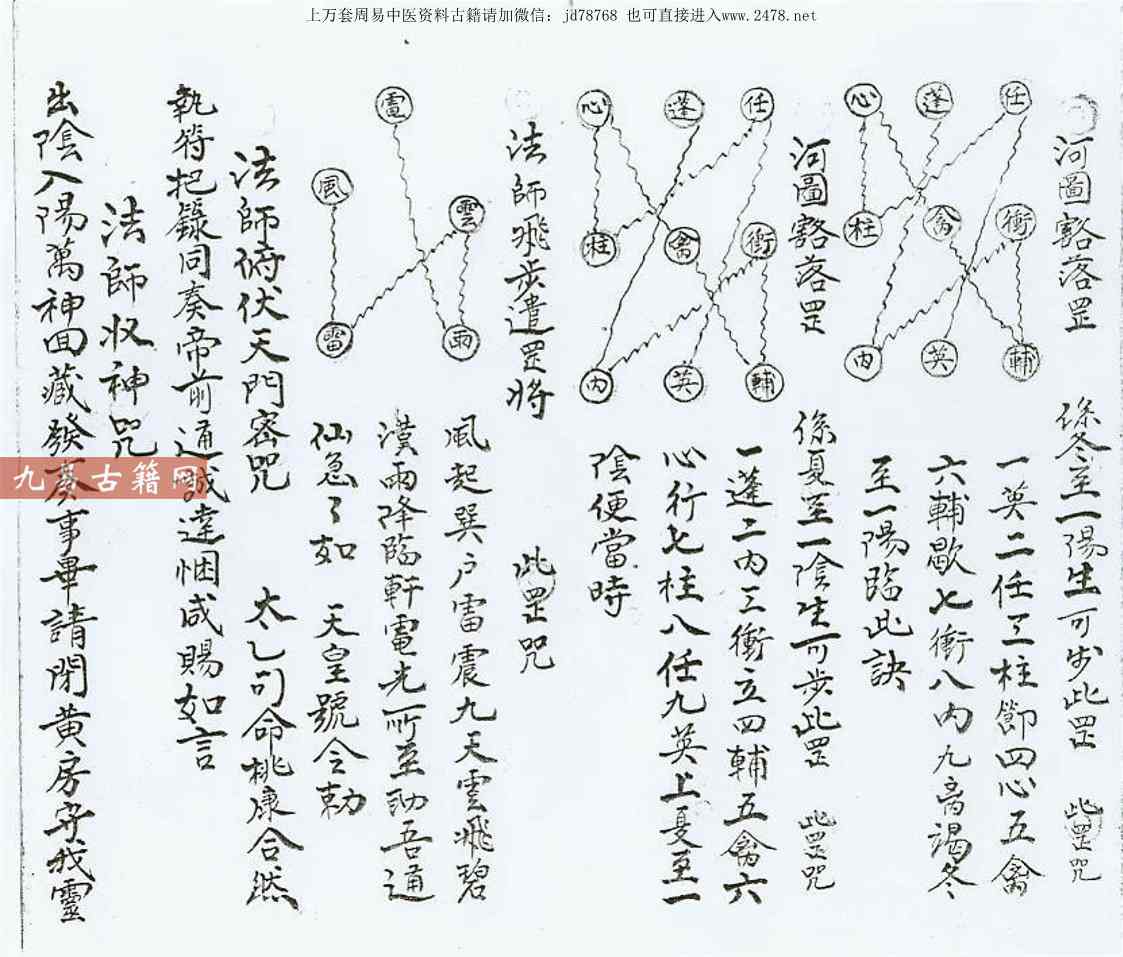 上万套周易中医资料古籍请加微信：jd78768 也可直接进入www.2478.net
河圖豁落罡 係冬至一陽生可步此罡 此罡咒
任 蓬 心
衝 禽 柱
輔 英 内
一英二任三柱節四心五禽
六輔歇七衝八内九音謁冬
至一陽臨此訣
河圖豁落罡 係夏至一陰生可步此罡 此罡咒
任 蓬 心
衝 禽 柱
輔 英 内
一蓬二内三衝立四輔五禽六
心行七柱八任九英上夏至一
陰便當時
法師飛步遣罡将 此罡咒
電
風 雲
雷 雨
風起巽户雷震九天雲飛碧
漢雨降臨軒電光所至助吾通
仙急了如 天皇號令勅
法師俯伏天門密咒 太乙司命桃康合然
執符把籙同奏帝前通誠達悃咸賜如言
法師収神咒
出陰入陽萬神回藏發奏事畢請閉黄房守我靈
九易古籍网